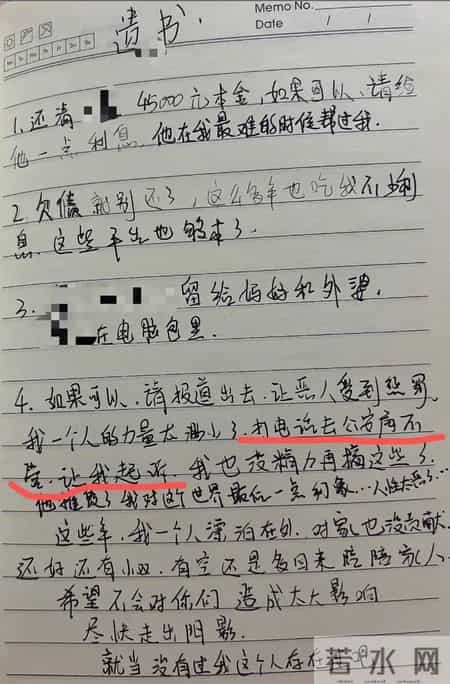 Memo No.
Date / /
遗书.
1.还清 45000元本金,如果可以,请给
他一点利息,他在我最难的时候帮过我.
2.欠债就别还了,这么多年也吃我不少利
息,这些年也够本了.
3. 留给妈妈和外婆.
在电脑包里.
4.如果可以,请报道出去,让恶人受到惩罚.
我一个人的力量太渺小了,打电话去公安局不
管,让我起诉,我也没精力再搞这些了.
他摧毁了我对这个世界最后一点幻象...人性太恶了...
这些年,我一个人漂泊在外,对家也没贡献.
还好还有小 ,有空还是多回来陪陪家人.
希望不会对你们造成太大影响
尽快走出阴影.
就当没有过我这个人存在
若水网